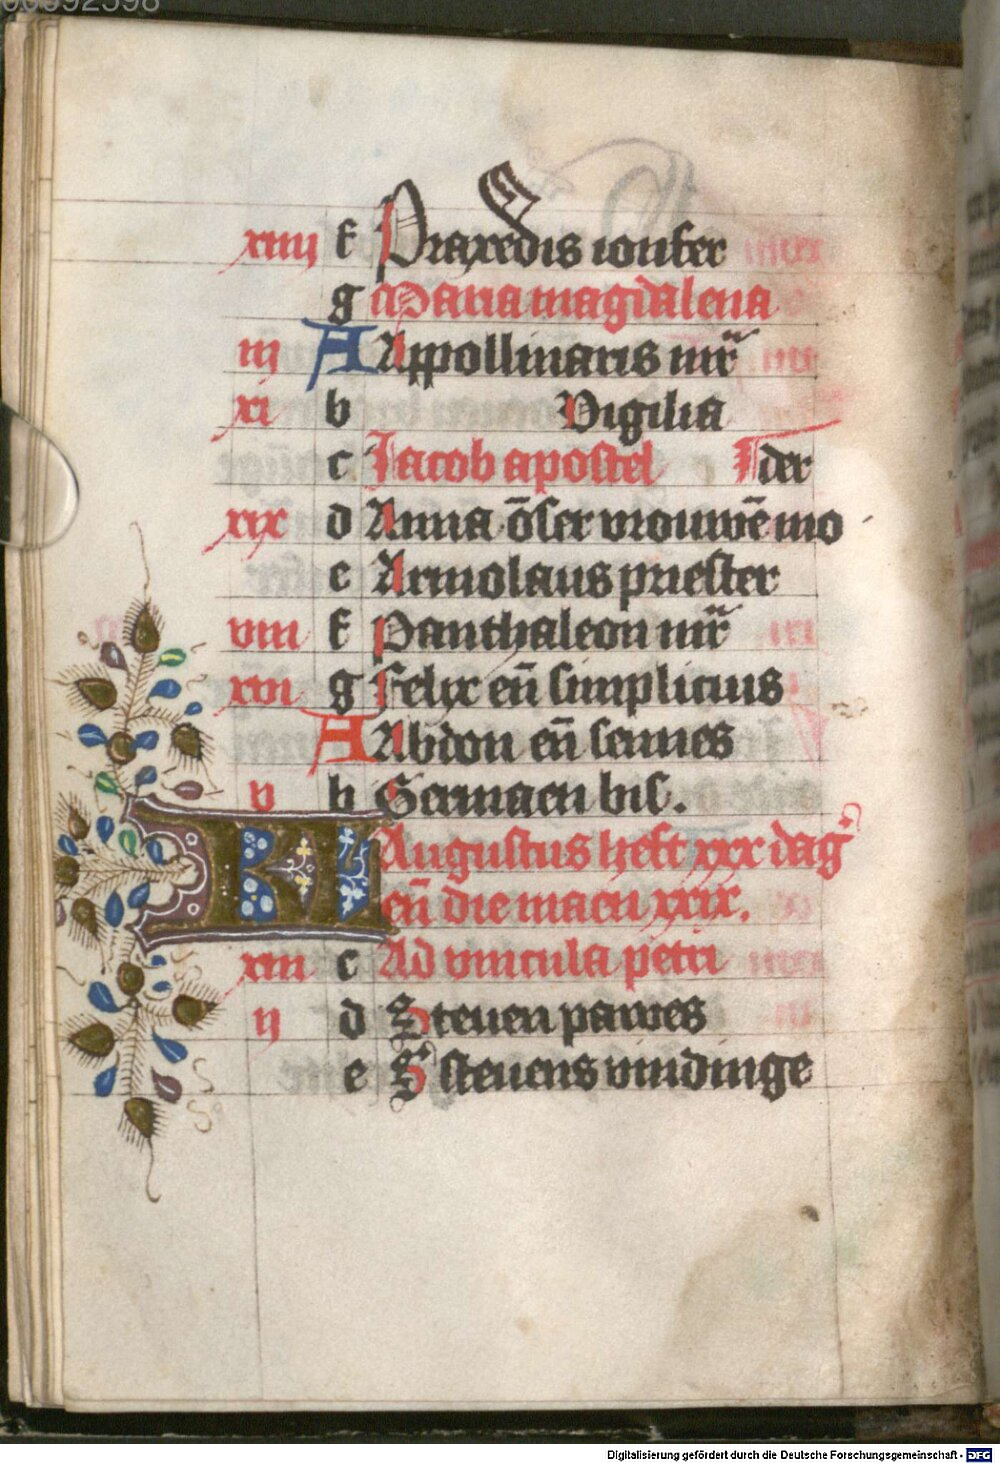 00392598
xiiij f Praxedis ionfer
g Maria magdalena
iij A Appollinaris mr̄
xi b Vigilia
c Jacob apostel Jder
xix d Anna ōser vrouwē mo
e Armolaus priester
viij f Panthaleon mr̄
xvi g Felix en̄ simplicius
A Abdon en̄ sennes
v b Germaen bisc.
KL Augustus heft xxx dagē
en̄ die maen xxix.
xiij c Ad vincula petri
ij d Steuen pawes
e S steuens vindinge
Digitalisierung gefördert durch die Deutsche Forschungsgemeinschaft - DFG